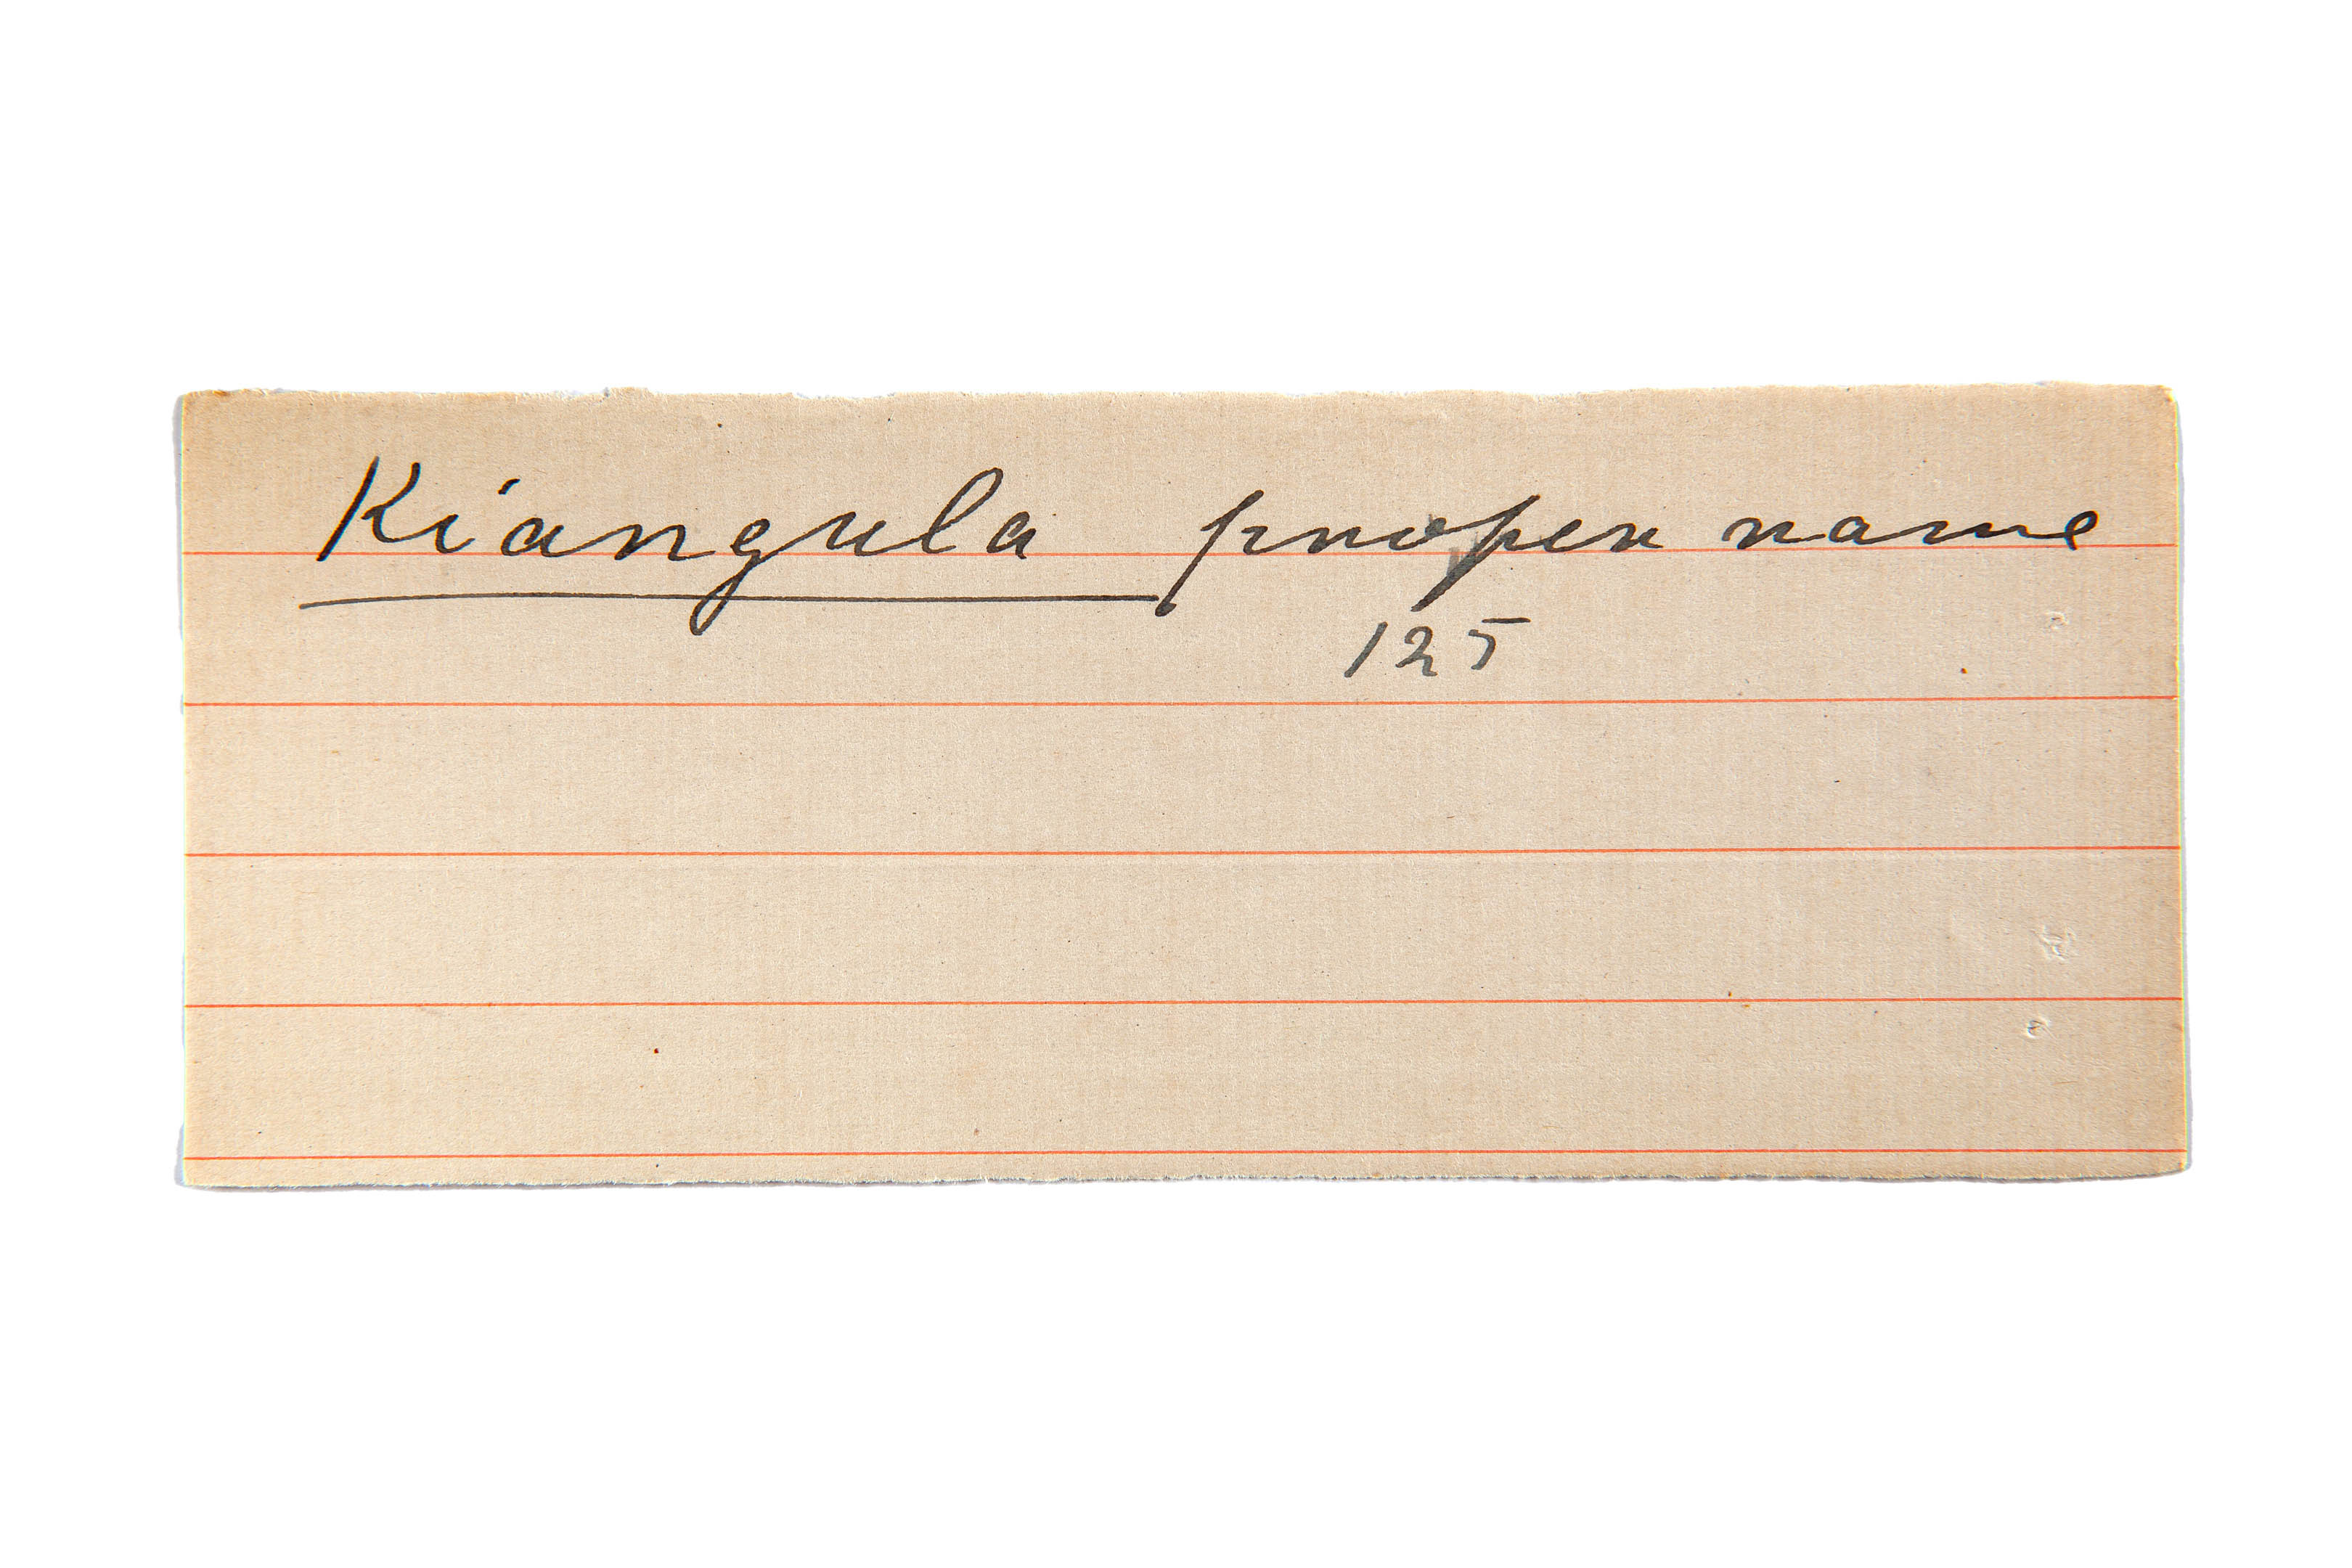 Kiangula proper name
125